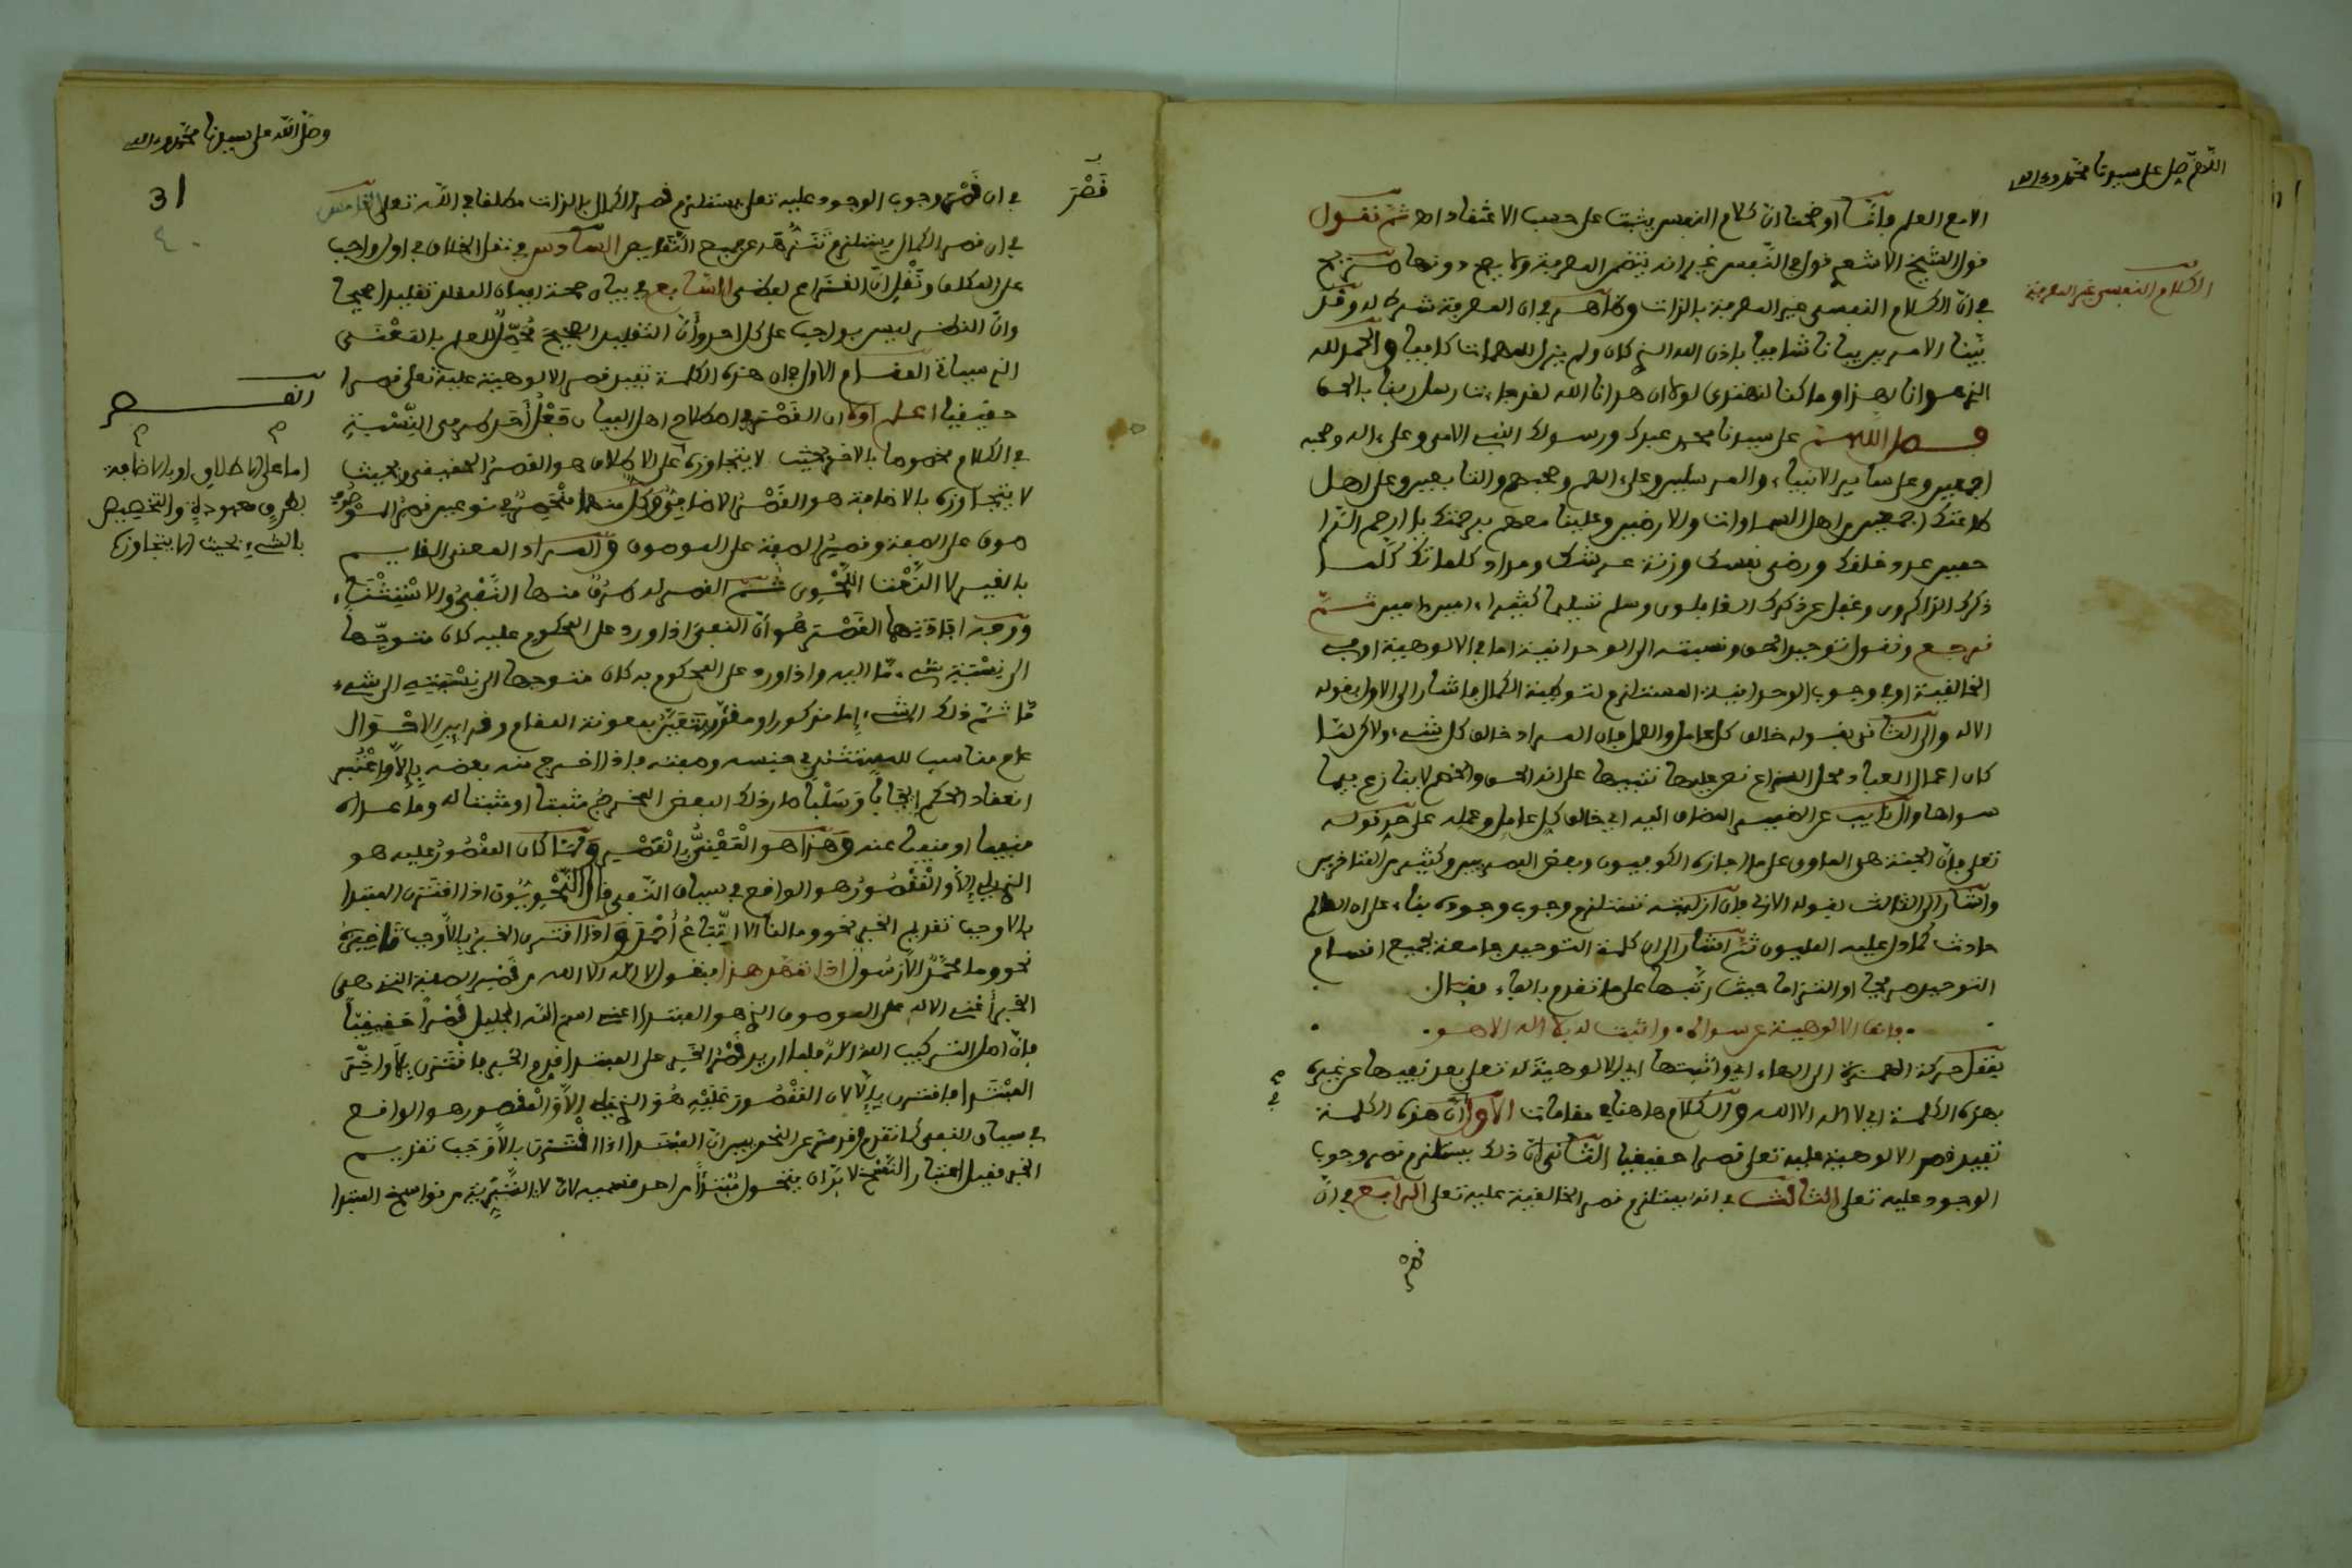 اللهم صل على سيدنا محمد وءاله
الامع العلم وانما اوضحنا ان كلام النفس يثبت على حسب الاعتقاد اه ثم نقول
قول الشيخ الاشعري قول في النفس غير انه يتضمن المعرفة ولا يصح دونها صريح
في ان الكلام النفسي غير المعرفة بالذات وظاهر في ان المعرفة شرط له وقد
الكلام النفسي غير المعرفة
بينا الامر بيانا شافيا باذن الله الذي كان ولم يزل للمهمات كافيا والحمد لله
الذي هدانا لهذا وما كنا لنهتدي لولا ان هدانا الله لقد جاءت رسل ربنا بالحق
وصل اللهم على سيدنا محمد عبدك ورسولك النبي الامي وعلى ءاله وصحبه
اجمعين وعلى سائر الانبياء والمرسلين وعلى ءالهم وصحبهم والتابعين وعلى اهل
طاعتك اجمعين من اهل السماوات والارضين وعلينا معهم برحمتك يا ارحم الرا
حمين عدد خلقك ورضى نفسك وزنة عرشك ومداد كلماتك كلما
ذكرك الذاكرون وغفل عن ذكرك الغافلون وسلم تسليما كثيرا ءامين ءامين ثم
نرجع ونقول توحيد الحق ونسبته الى الوحدانية اما في الالوهية او في
الخالقية او في وجوب الوحدانية المستلزم لتوحيد الكمال فاشار الى الاول بقوله
الاله والى الثاني بقوله خالق كل عامل والعمل فان المراد خالق كل شيء ولاكن لما
كان اعمال العباد محل النزاع نص عليها تنبيها على انه الحق والخصم لا ينازع فيما
سواها وال نايب عن الضمير المضاف اليه اي خالق كل عامل وعمله على حد قوله
تعلى فان الجنة هي الماوى على ما اجازه الكوفيون وبعض البصريين وكثير من المتاخرين
واشار الى الثالث بقوله الازلي فان ازليته تستلزم وجوب وجوده بناء على ان العالم
حادث كما دل عليه المليون ثم اشار الى ان كلمة التوحيد جامعة لجميع اقسام
التوحيد صريحا او التزاما حيث رتبها على ما تقدم بالفاء فقال
فانف الالوهية عن سواه • واثبت له بلا اله الا هو
بنقل حركة الهمزة الى الهاء اي واثبتها اي الالوهية له تعلى بعد نفيها عن غيره
بهذه الكلمة اي لا اله الا الله والكلام ها هنا في مقامات الاول ان هذه الكلمة
تفيد قصر الالوهية عليه تعلى قصرا حقيقيا الثاني ان ذلك يستلزم قصر وجوب
الوجود عليه تعلى الثالث في انه يستلزم قصر الخالقية عليه تعلى الرابع في ان
قصر
وصلى الله على سيدنا محمد وءاله
31
قصر
في ان قصر وجوب الوجود عليه تعلى يستلزم قصر الكمال بالذات مطلقا في الله تعلى الخامس
في ان قصر الكمال يستلزم تنزهه عن جميع النقايص السادس في نقل الخلاف في اول واجب
على المكلف ونقل ان النزاع لفظي السابع في بيان صحة ايمان المقلد تقليدا صحيحا
وان النظر ليس بواجب على كل احد وان التقليد الصحيح محصل للعلم بالمعنى
الذي سياتي المقام الاول في ان هذه الكلمة تفيد قصر الالوهية عليه تعلى قصرا
حقيقيا اعلم اولا ان القصر في اصطلاح اهل البيان جعل احد طرفي النسبة
في الكلام مخصوصا بالاخر بحيث لا يتجاوزه على الاطلاق هو القصر الحقيقي وبحيث
لا يتجاوزه بالاضافة هو القصر الاضافي وكل منهما منحصر في نوعين قصر الموصوف
صوف على الصفة وقصر الصفة على الموصوف والمراد المعنى القايم
بالغير لا النعت النحوي ثم القصر له طرق منها النفي والاستثناء
ووجه افادتهما القصر هو ان النفي اذا ورد على المحكوم عليه كان متوجها
الى نسبة شيء ما اليه واذا ورد على المحكوم به كان متوجها الى نسبته الى شيء
ما ثم ذلك الشيء اما مذكور او مقدر يتعين بمعونة المقام وقراين الاحوال
عام مناسب للمستثنى في جنسه وصفته فاذا اخرج منه بعضه بالا واعتبر
انعقاد الحكم ايجابا وسلبا صار ذلك البعض المخرج مثبتا او مثبتا له وما عداه
منفيا او منفيا عنه وهذا هو المعني بالقصر ولما كان المقصور عليه هو
الذي يلي الا والمقصور هو الواقع في سياق النفي قال النحويون اذا اقترن المبتدا
بالا وجب تقديم الخبر نحو وما لنا الا اتباع احمد واذا اقترن الخبر بالا وجب تاخيره
نحو وما محمد الا رسول اذا تقرر هذا فنقول لا اله الا الله من قصر الصفة التي هي
الخبر اعني الاله على الموصوف الذي هو المبتدا اعني اسم الله الجليل قصرا حقيقيا
فان اصل التركيب الله اله فلما اريد قصر الخبر على المبتدا قدم الخبر فاقترن بلا واخر
المبتدا فاقترن بالا لان المقصور عليه هو الذي يلي الا والمقصور هو الواقع
في سياق النفي كما تقدم وقد مر عن النحويين ان المبتدا اذا اقترن بالا وجب تقديم
الخبر فقبل اعتبار النسخ لا بد ان يتحول مبتدا من احد قسميه لان لا التبرية من نواسخ المبتدا
القصر
اما على الاطلاق او بالاضافة
بطرق معهودة والتخصيص
بالشيء بحيث لا يتجاوزه